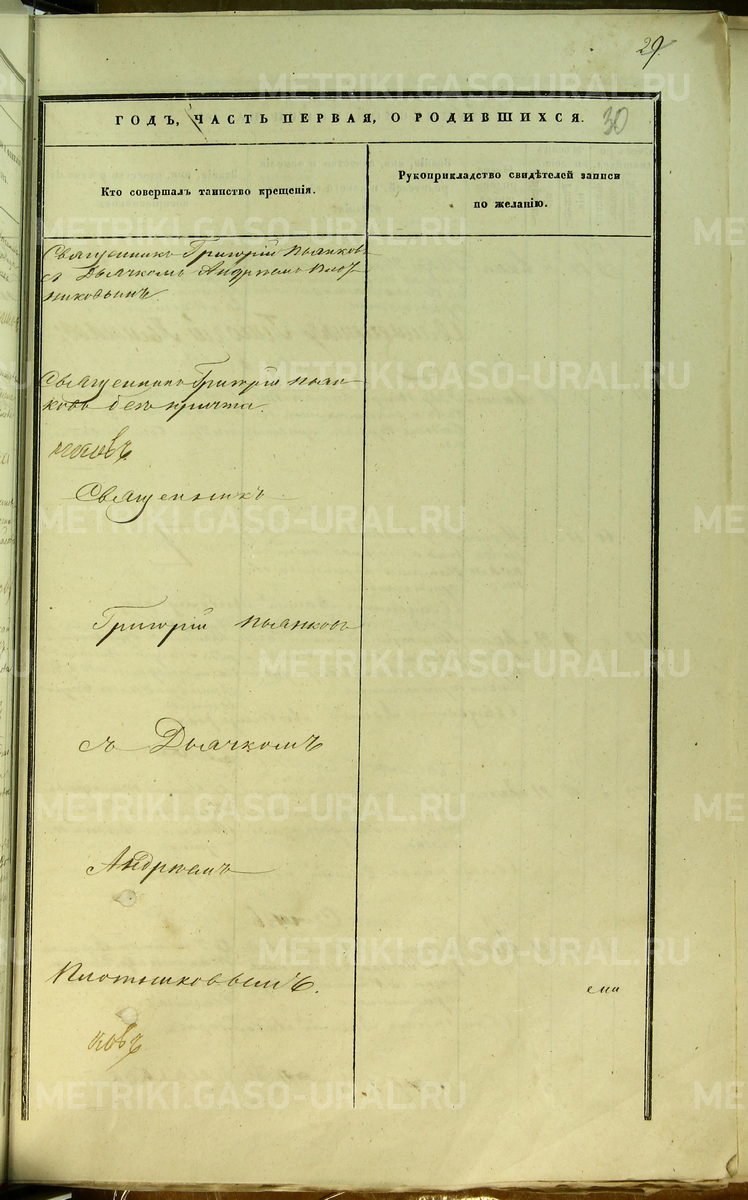 29.
ГОДЪ, ЧАСТЬ ПЕРВАЯ, О РОДИВШИХСЯ. 30
Кто совершалъ таинство крещенія.
Рукоприкладство свидѣтелей записи
по желанію.
Священникъ Григорій Пьянковъ
съ Дьячкомъ Андрѣемъ Плот
никовымъ.
Священникъ Григорій Пьян-
ковъ безъ причта.
Священникъ
Григорій Пьянковъ
съ Дьячкомъ
Андрѣемъ
Плотниковымъ.
METRIKI.GASO-URAL.RU